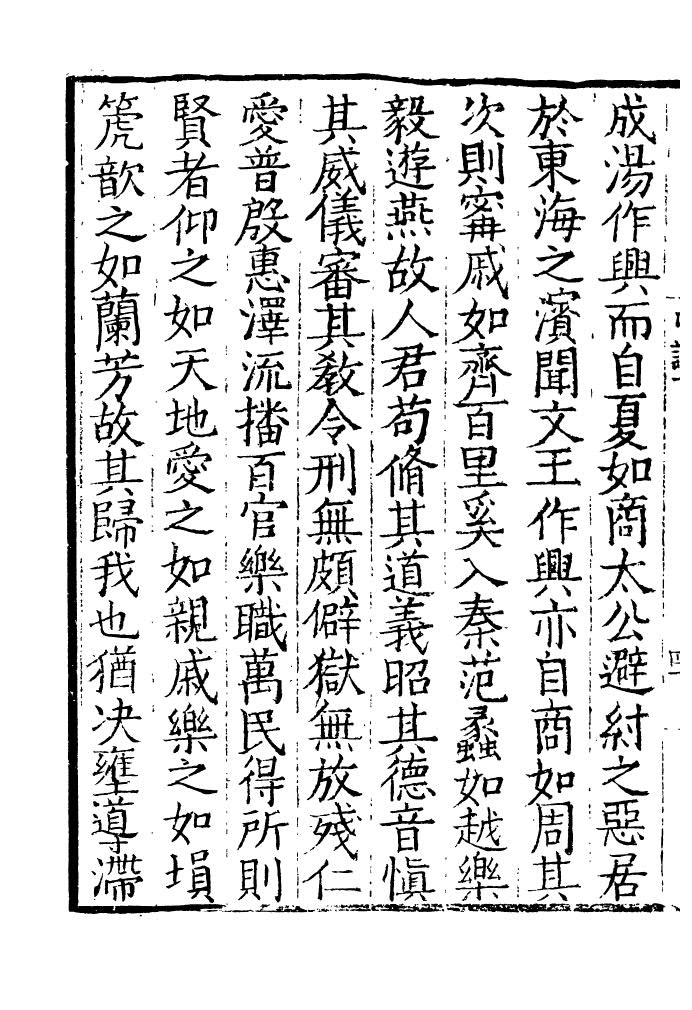 成湯作興而自夏如商太公避紂之惡居
於東海之濱聞文王作興亦自商如周其
次則甯戚如齊百里奚入秦范蠡如越樂
毅遊燕故人君苟脩其道義昭其德音慎
其威儀審其教令刑無頗僻獄無放殘仁
愛普殷惠澤流播百官樂職萬民得所則
賢者仰之如天地愛之如親戚樂之如塤
篪歆之如蘭芳故其歸我也猶决壅導滯